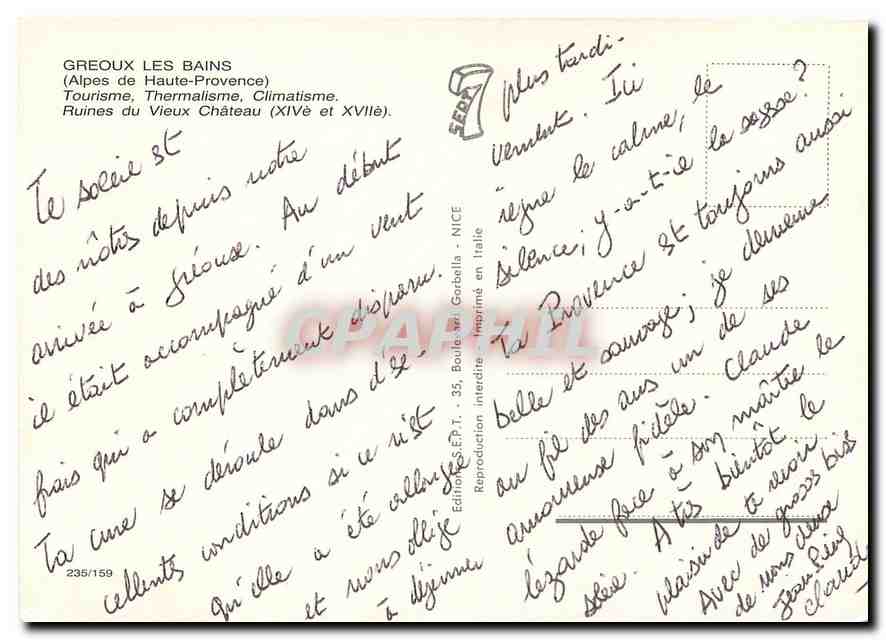 GREOUX LES BAINS
(Alpes de Haute-Provence)
Tourisme, Thermalisme, Climatisme.
Ruines du Vieux Château (XIVè et XVIIè).
Le soleil st
des nôtres depuis notre
arrivée à Gréoux. Au début
il était accompagné d'un vent
frais qui a complètement disparu.
La cure se déroule dans d'ex-
cellentes conditions si ce n'est
qu'elle a été allongée
et nous oblige
à déjeuner
235/159
SEPT 7
Editions S.E.P.T. - 35, Boulevard Gorbella - NICE
Reproduction interdite - Imprimé en Italie
CPAPHIL
plus tardi-
vement. Ici
règne le calme, le
silence; y-a-t-il la sagesse?
La Provence st toujours aussi
belle et sauvage; je demeure
au fil des ans un de ses
amoureux fidèle. Claude
lézarde face à son maître le
soleil. A très bientôt le
plaisir de te revoir
Avec de gros bises
de nous deux
Claude